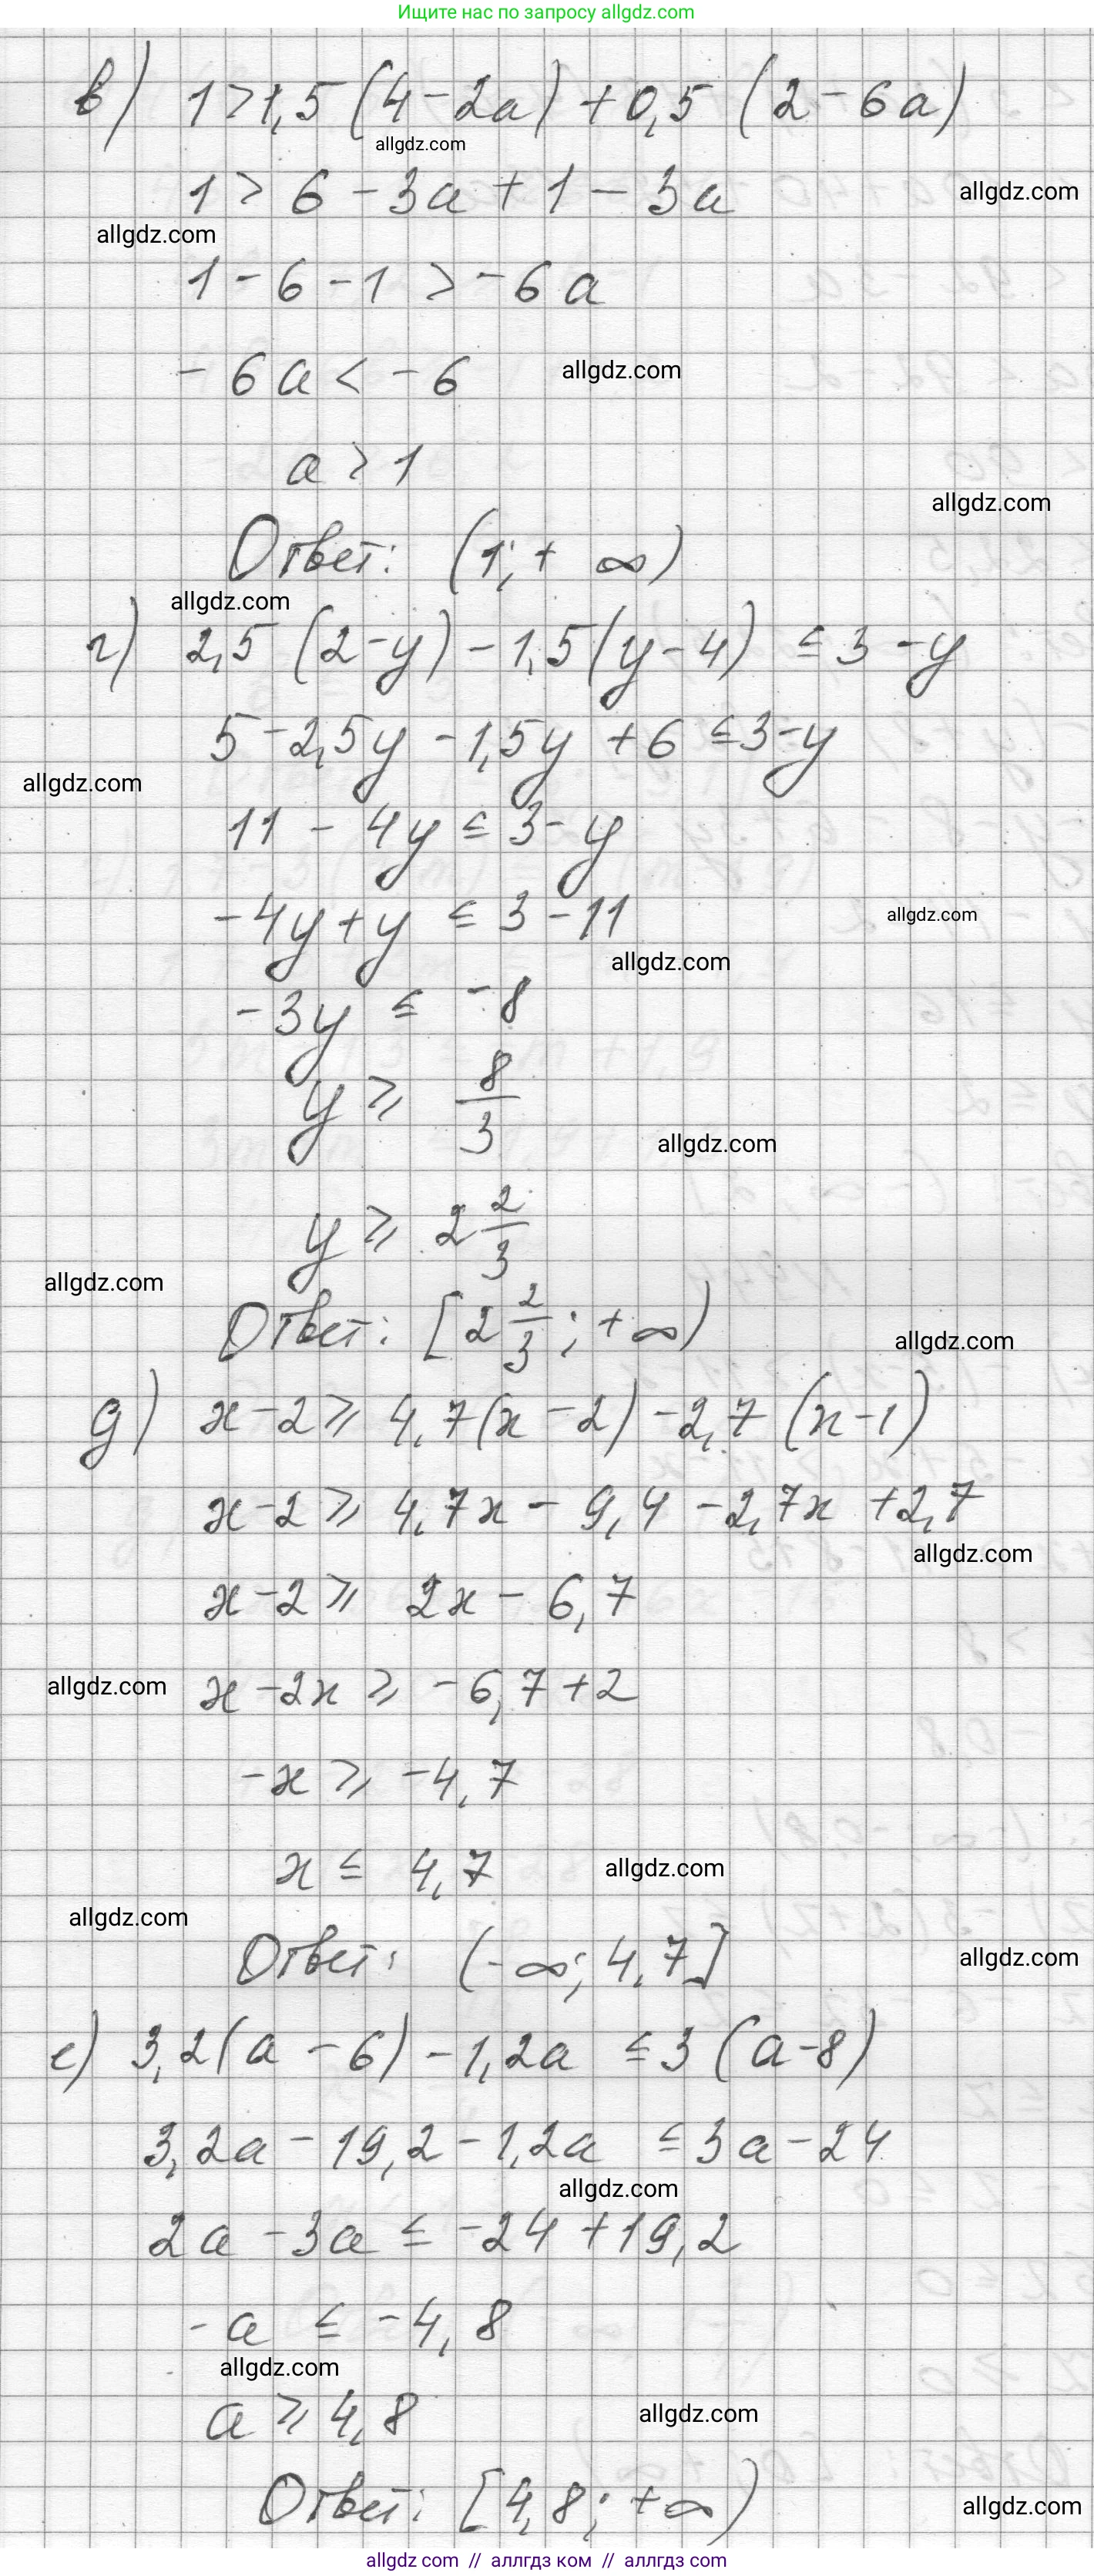 Ищите нас по запросу allgdz.com
в) 1>1,5(4-2a)+0,5(2-6a)
allgdz.com
1>6-3a+1-3a
allgdz.com
allgdz.com
1-6-1>-6a
-6a<-6
allgdz.com
a>1
allgdz.com
Ответ: (1;+∞)
allgdz.com
г) 2,5(2-y)-1,5(y-4)≤3-y
5-2,5y-1,5y+6≤3-y
allgdz.com
11-4y≤3-y
-4y+y≤3-11
allgdz.com
allgdz.com
-3y≤-8
y≥8/3
allgdz.com
y≥2 2/3
allgdz.com
Ответ: [2 2/3;+∞)
allgdz.com
д) x-2≥4,7(x-2)-2,7(x-1)
x-2≥4,7x-9,4-2,7x+2,7
allgdz.com
x-2≥2x-6,7
allgdz.com
x-2x≥-6,7+2
-x≥-4,7
x≤4,7
allgdz.com
allgdz.com
Ответ: (-∞;4,7]
allgdz.com
е) 3,2(a-6)-1,2a≤3(a-8)
3,2a-19,2-1,2a≤3a-24
allgdz.com
2a-3a≤-24+19,2
-a≤-4,8
allgdz.com
a≥4,8
allgdz.com
Ответ: [4,8;+∞)
allgdz.com
allgdz.com // аллгдз ком // аллгдз.com